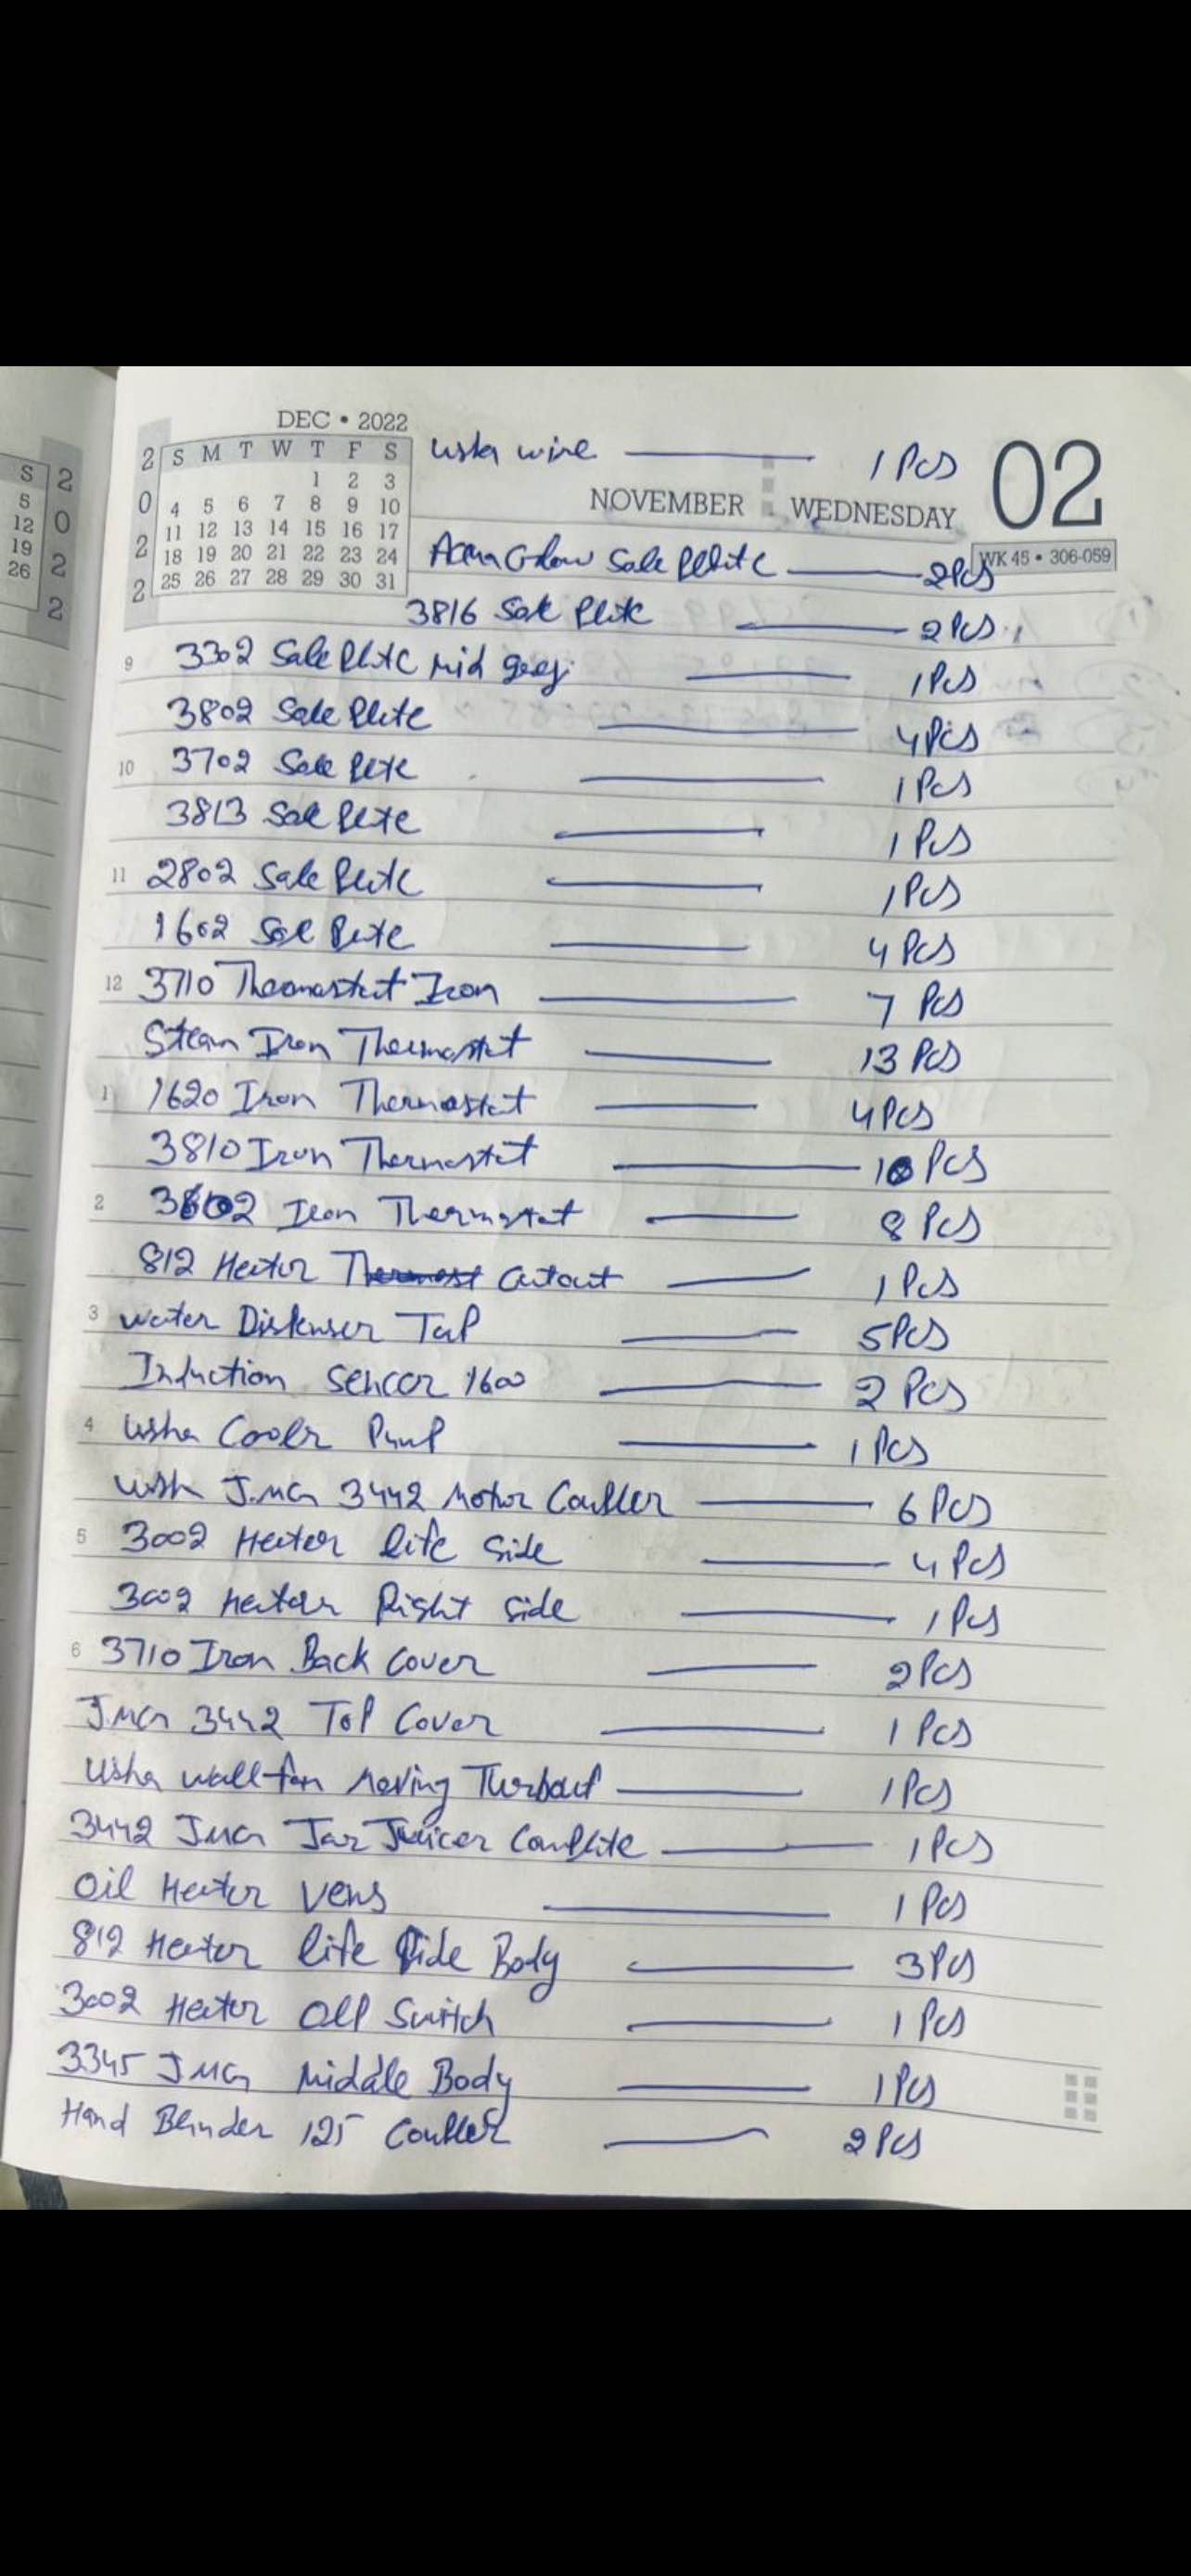 DEC • 2022
S M T W T F S
1 2 3
4 5 6 7 8 9 10
11 12 13 14 15 16 17
18 19 20 21 22 23 24
25 26 27 28 29 30 31
2 0 2 2
S 5 12 19 26
2 0 2 2
usha wire 1 Pcs
02
NOVEMBER WEDNESDAY
WK 45 • 306-059
Sale Plite 2 Pcs
3816 Sole Plite 2 Pcs
9 3302 Sale Plite Mid 1 Pcs
3802 Sale Plite 4 Pcs
10 3702 Sale Plite 1 Pcs
3813 Sale Plite 1 Pcs
11 2802 Sale Plite 1 Pcs
1602 Sole Plite 4 Pcs
12 3710 Thermostat Iron 7 Pcs
Steam Iron Thermostat 13 Pcs
1 1620 Iron Thermostat 4 Pcs
3810 Iron Thermostat Pcs
2 Iron Thermostat 8 Pcs
812 Heater Cutout 1 Pcs
3 water Dispenser Tap 5 Pcs
Induction sencor 1600 2 Pcs
4 usha Coolr Pump 1 Pcs
ush J.MG 3442 Motor Coupler 6 Pcs
5 3002 Heater lite Side 4 Pcs
3002 Heater Right side 1 Pcs
6 3710 Iron Back Cover 2 Pcs
J.MG 3442 Top Cover 1 Pcs
usha wall fan Moving 1 Pcs
3442 JMG Jar Juicer Complite 1 Pcs
Oil Heater Vens 1 Pcs
812 Heater life Side Body 3 Pcs
3002 Heater Switch 1 Pcs
3345 JMG Middle Body 1 Pcs
Hand Blinder 125 Coupler 2 Pcs